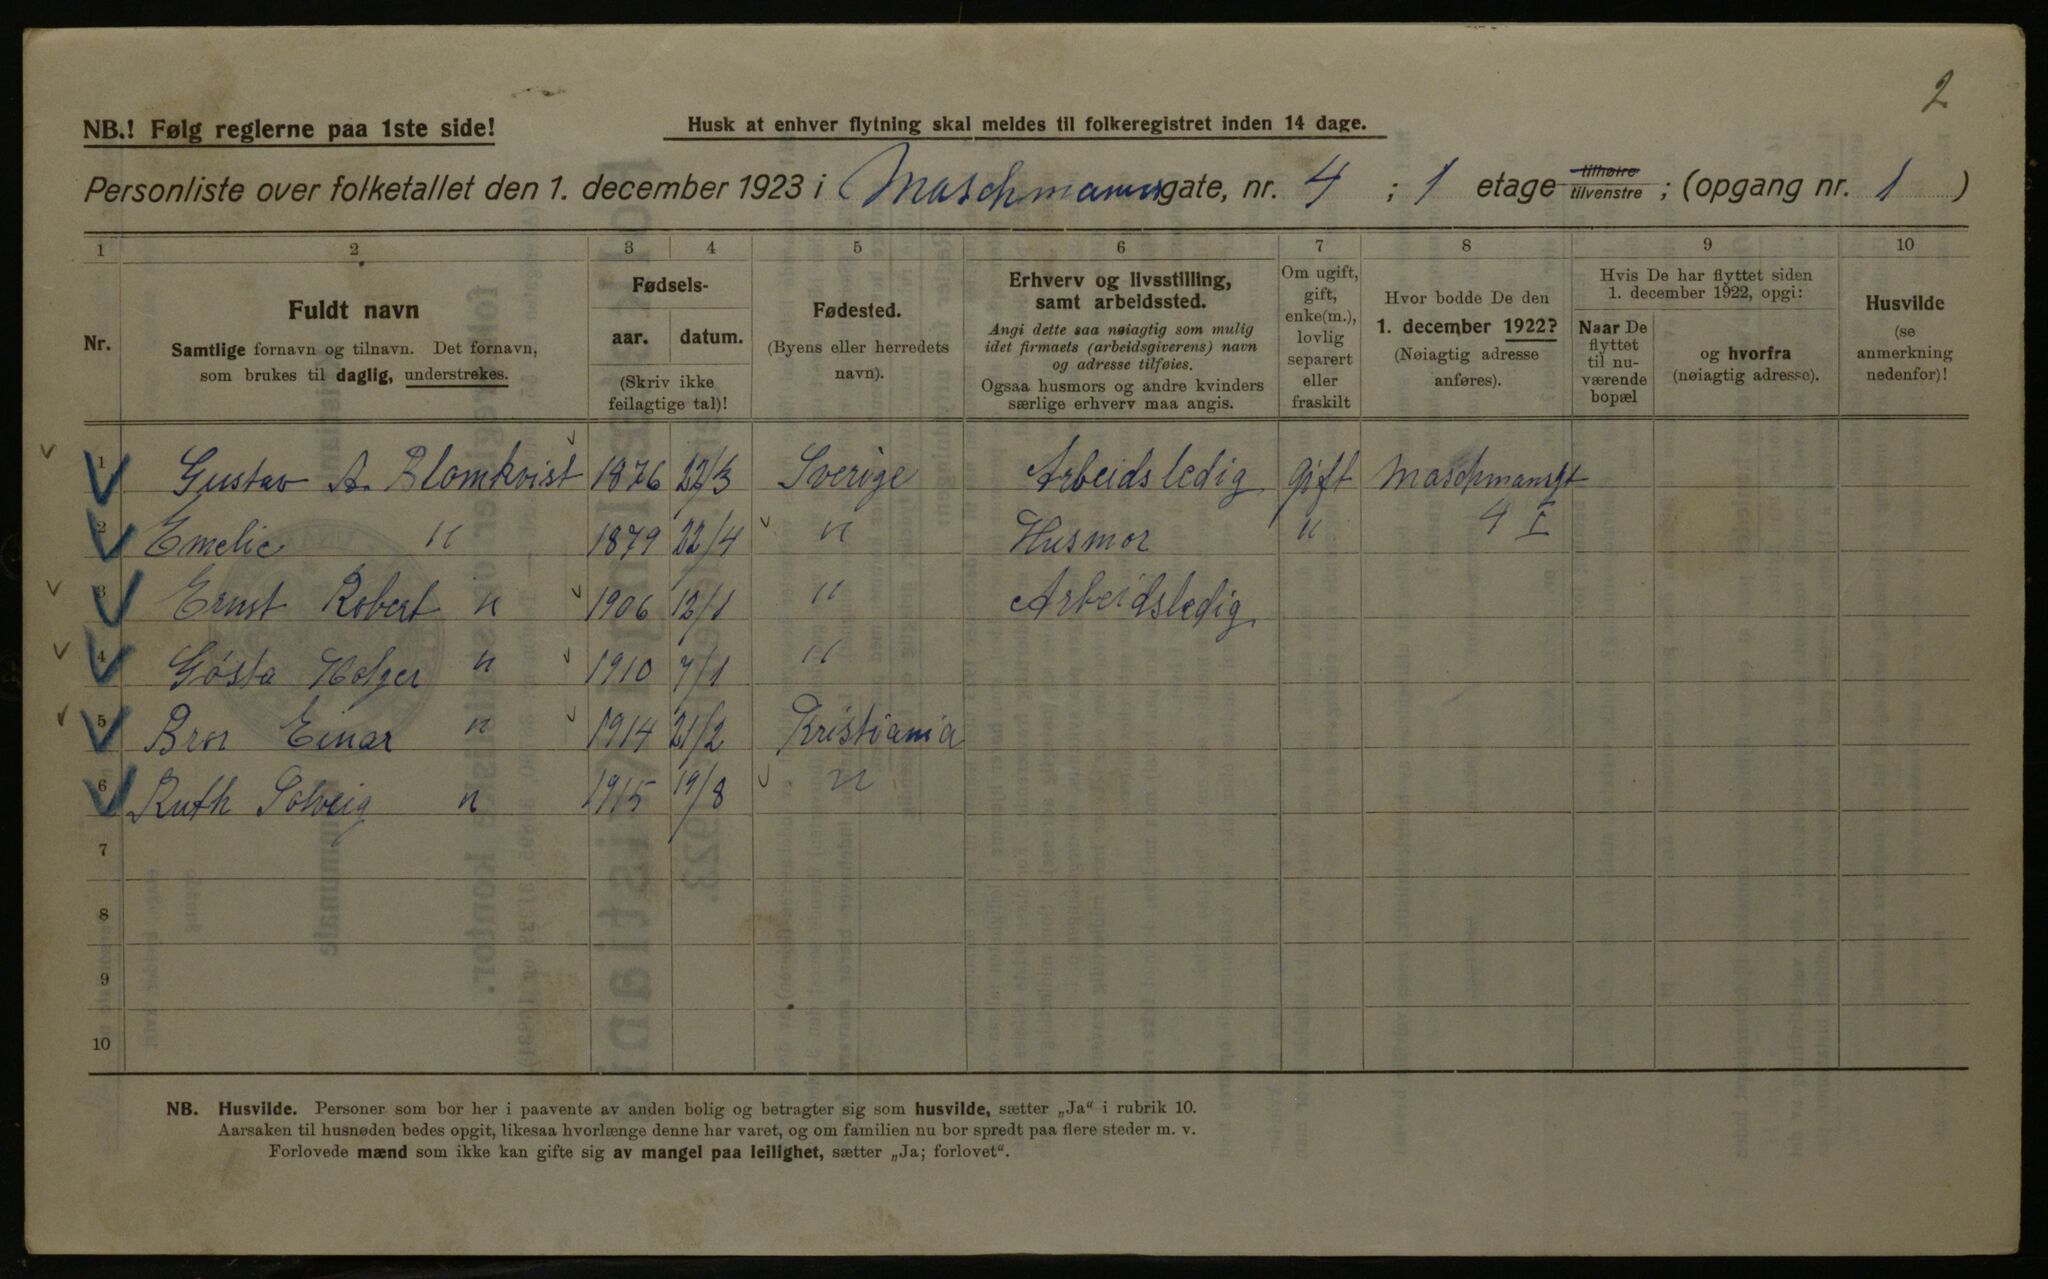 2
NB.! Følg reglerne paa 1ste side!
Husk at enhver flytning skal meldes til folkeregistret inden 14 dage.
Personliste over folketallet den 1. december 1923 i Maschmannsgate, nr. 4 ; 1 etage tilhøire tilvenstre ; (opgang nr. 1 )
1 2 3 4 5 6 7 8 9 10
Nr.
Fuldt navn
Samtlige fornavn og tilnavn. Det fornavn,
som brukes til daglig, understrekes.
Fødsels-
aar. datum.
(Skriv ikke
feilagtige tal)!
Fødested.
(Byens eller herredets
navn).
Erhverv og livsstilling,
samt arbeidssted.
Angi dette saa nøiagtig som mulig
idet firmaets (arbeidsgiverens) navn
og adresse tilføies.
Ogsaa husmors og andre kvinders
særlige erhverv maa angis.
Om ugift,
gift,
enke(m.),
lovlig
separert
eller
fraskilt
Hvor bodde De den
1. december 1922?
(Nøiagtig adresse
anføres).
Hvis De har flyttet siden
1. december 1922, opgi:
Naar De
flyttet
til nu-
værende
bopæl
og hvorfra
(nøiagtig adresse).
Husvilde
(se
anmerkning
nedenfor)!
1 Gustav A. Blomkvist 1876 22/3 Sverige Arbeidsledig gift Maschmansgt
2 Emelie " 1879 22/4 " Husmor " 4 I
3 Ernst Robert " 1906 12/1 " Arbeidsledig
4 Gøsta Holger " 1910 7/1 "
5 Bror Einar " 1914 21/2 Kristiania
6 Ruth Solveig " 1915 19/8 "
7
8
9
10
NB. Husvilde. Personer som bor her i paavente av anden bolig og betragter sig som husvilde, sætter „Ja“ i rubrik 10.
Aarsaken til husnøden bedes opgit, likesaa hvorlænge denne har varet, og om familien nu bor spredt paa flere steder m. v.
Forlovede mænd som ikke kan gifte sig av mangel paa leilighet, sætter „Ja; forlovet“.